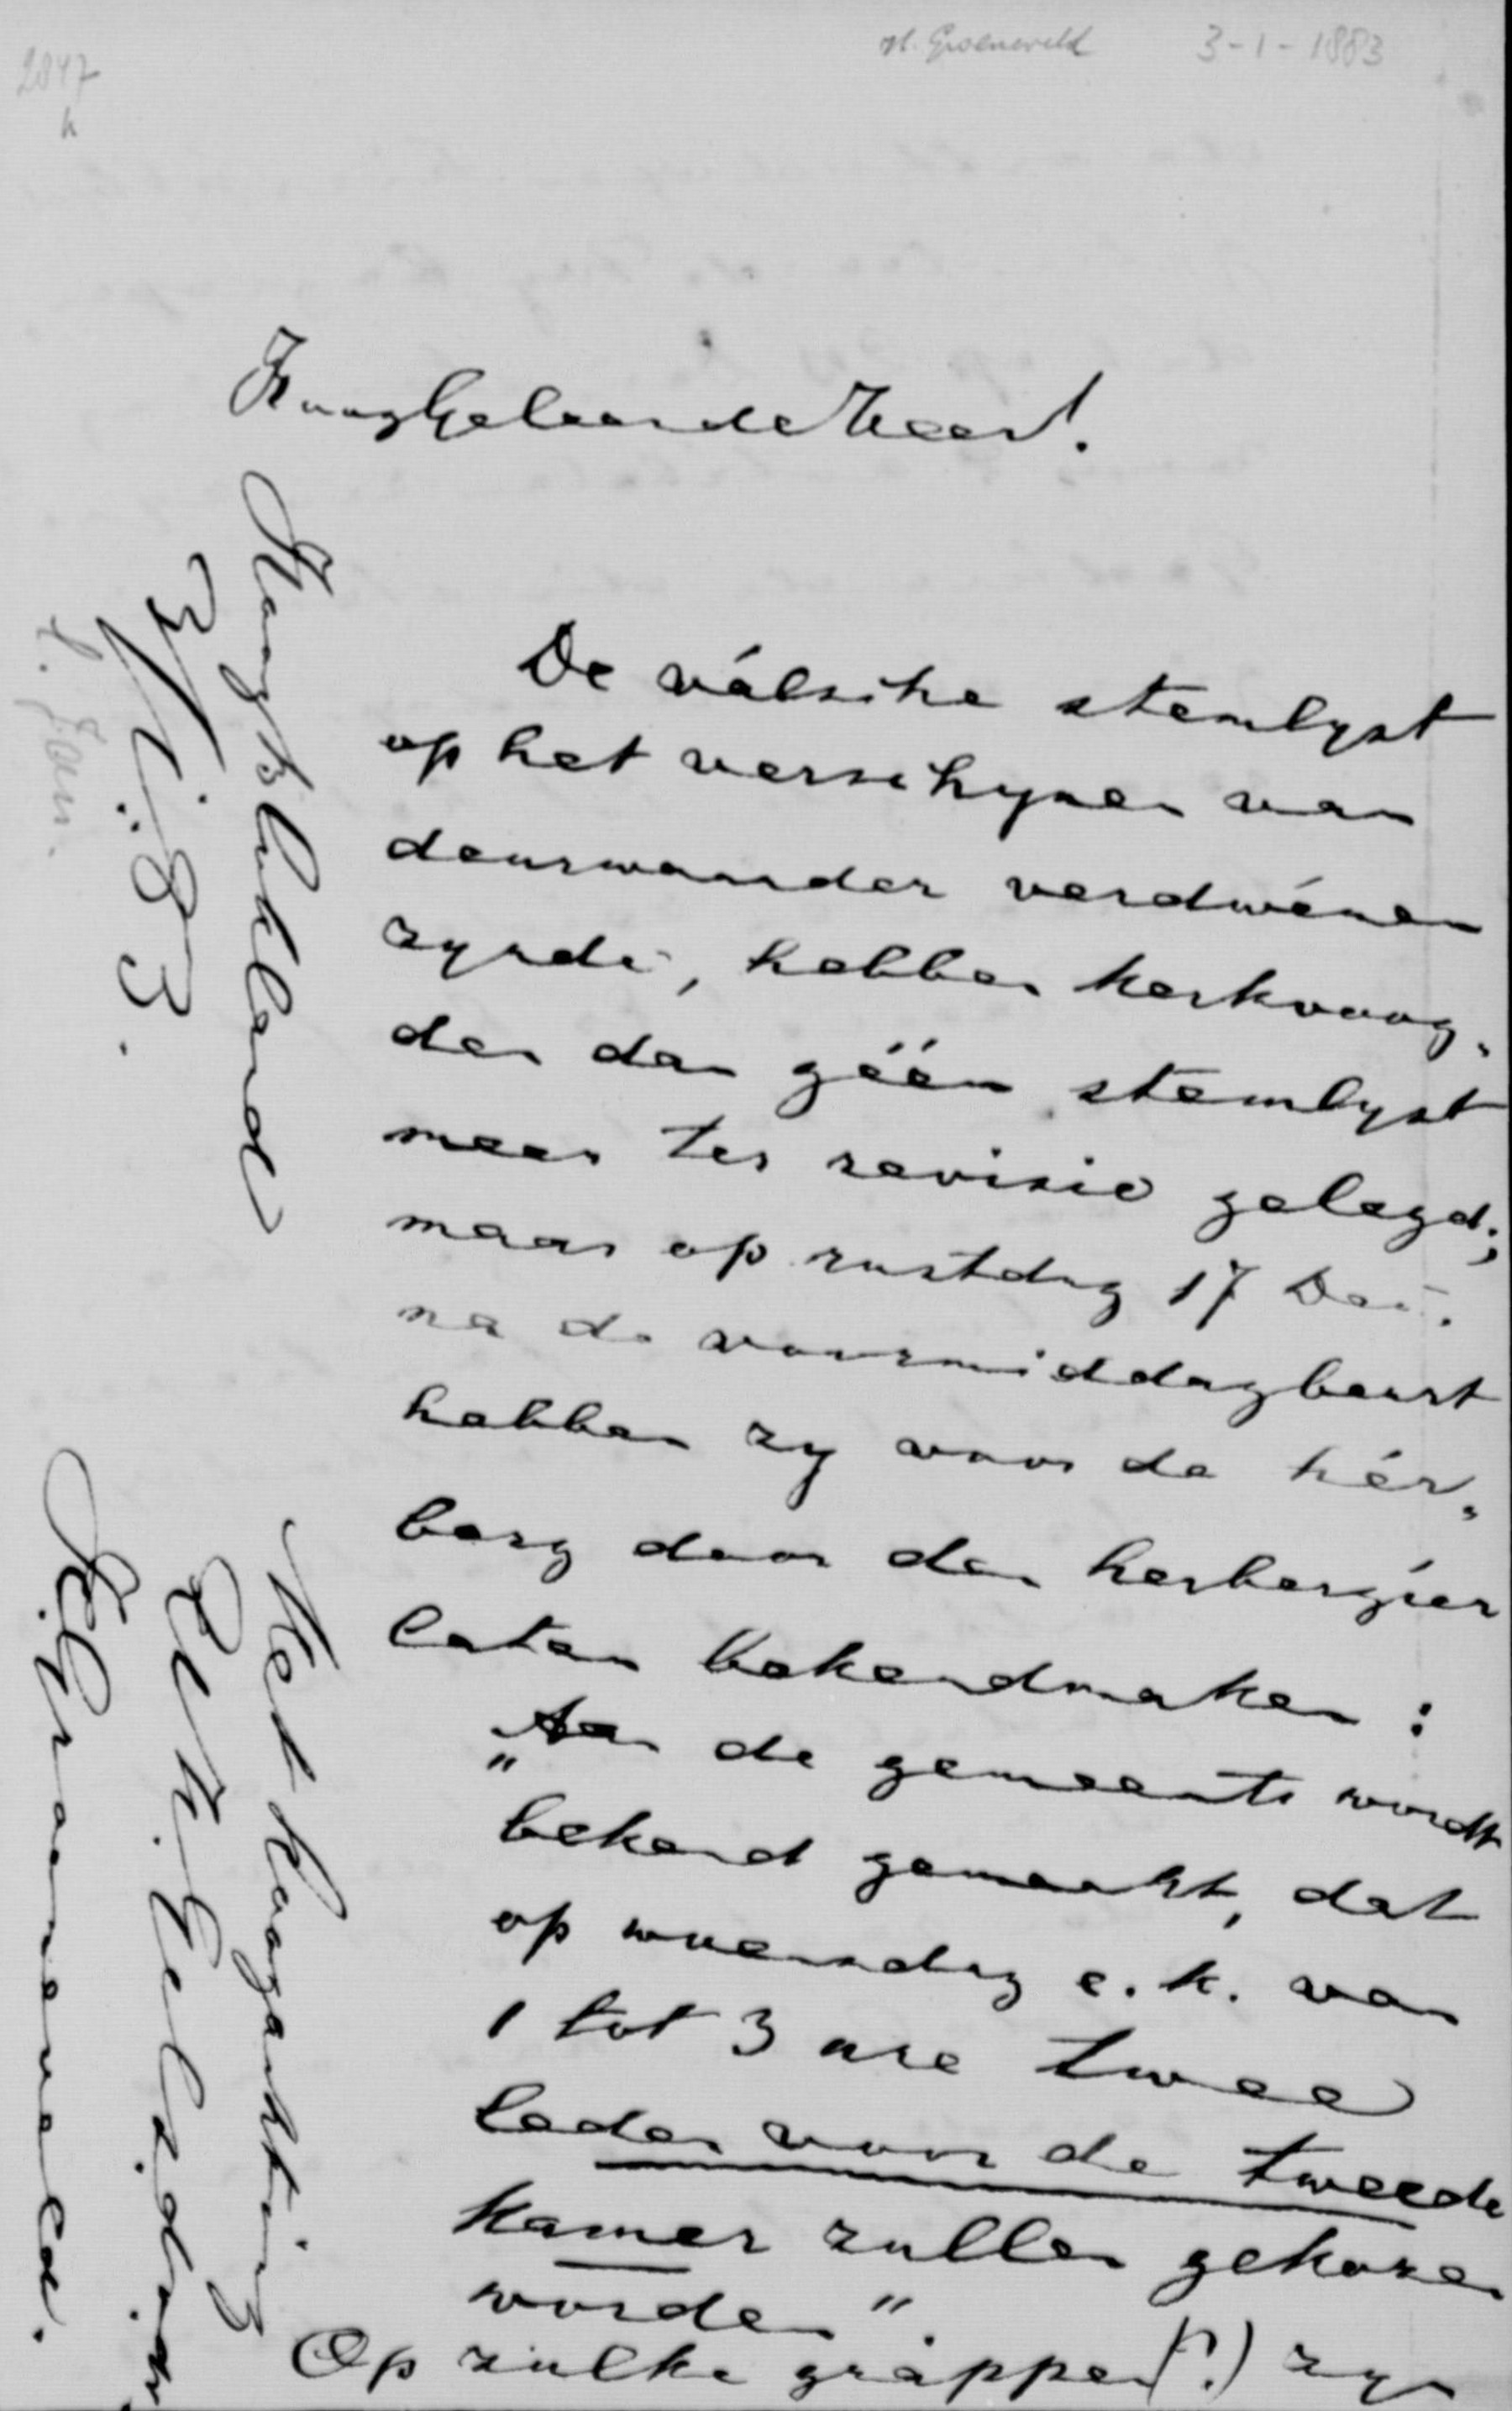 H. Groeneveld 3-1-1883
2847
h
HoogGeleerde Heer!
De válsche stemlyst
op het verschynen van
deurwaarder verdwénen
zynde, hebben kerkvoog„
den dan géén stemlyst
meer ter revisie gelegd;
maar op rustdag 17 Dec.
na de voormiddagbeurt
hebben zy voor de hér„
berg door den herbergier
laten bekendmaken:
„Aan de gemeente wordt
bekend gemaakt, dat
op woensdag e.k. van
1 tot 3 ure twee
leden voor de tweede
Kamer zullen gekozen
worden".
Op zulke grappen(?) zyn
3/1.'83.
2. Jan.
Met hoogachting
UEd. H. Gel. dv. dr.
H. Groeneveld.